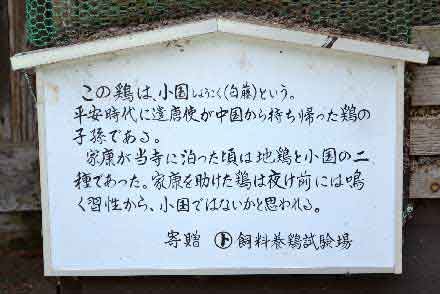 この鶏は、小国しょうこく(白藤)という。
平安時代に遣唐使が中国から持ち帰った鶏の
子孫である。
家康が当寺に泊った頃は地鶏と小国の二
種であった。家康を助けた鶏は夜け前には鳴
く習性から、小国ではないかと思われる。
寄贈 ㋣ 飼料養鶏試験場